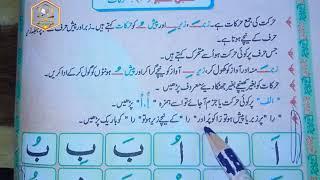 حرکت کی جمع حرکات ہے۔ زبر، زیر اور پیش کو حرکات کہتے ہیں۔ زبر اور پیش حرف کے
حرف کے نیچے ہوتا ہے۔
جس حرف پر کوئی حرکت ہو اسے متحرک کہتے ہیں۔
زبر منہ اور آواز کو کھول کر، زیر آواز کو نیچے گرا کر اور پیش ہونٹوں کو گول کر کے ادا کریں۔
حرکات کو بغیر کھینچے بغیر جھٹکا دیئے معروف پڑھیں۔
"الف" پر کوئی حرکت یا جزم آ جائے تو اسے ہمزہ "أ" پڑھیں۔
"را" پر زبر یا پیش ہو تو را کو پُر اور "را" کے نیچے زیر ہو تو "را" کو باریک پڑھیں۔
اَ اِ اُ بَ بِ بُ